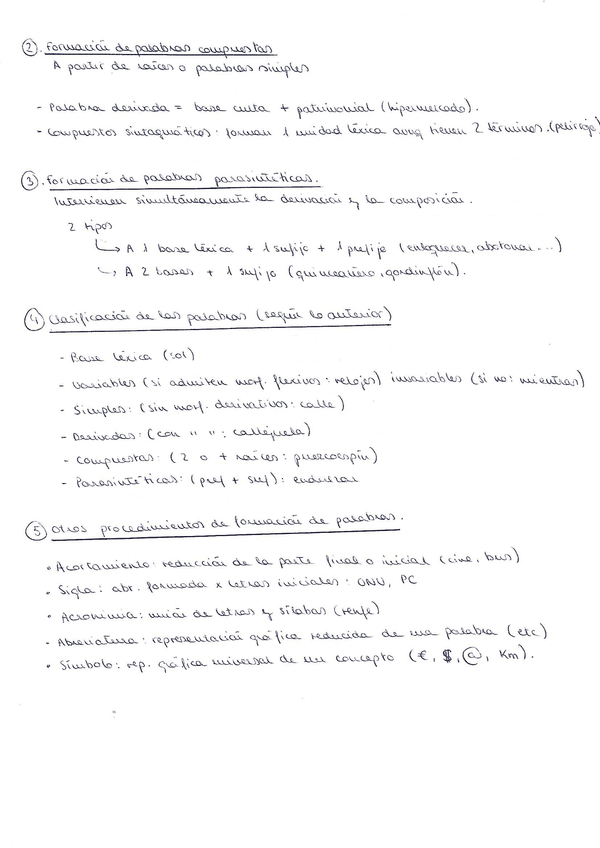 2. Formación de palabras compuestas
A partir de raíces o palabras simples
- Palabra derivada = base culta + patrimonial (hipermercado).
- Compuestos sintagmáticos: forman 1 unidad léxica aunq tienen 2 términos. (pelirrojo)
3. Formación de palabras parasintéticas.
Intervienen simultáneamente la derivación y la composición.
2 tipos
↳ A 1 base léxica + 1 sufijo + 1 prefijo (enloquecer, abotonar...)
↳ A 2 bases + 1 sufijo (quinceañero, gordinflón).
4 Clasificación de las palabras (según lo anterior)
- Base léxica (sol)
- Variables (si admiten morf. flexivos: relojes) invariables (si no: mientras)
- Simples: (sin morf. derivativos: calle)
- Derivadas: (con " ": callejuela)
- Compuestas: (2 o + raíces: puercoespín)
- Parasintéticas: (pref + suf): endulzar
5 Otros procedimientos de formación de palabras.
• Acortamiento: reducción de la parte final o inicial (cine, bus)
• Sigla: abr. formada x letras iniciales: ONU, PC
• Acronimia: unión de letras y sílabas (renfe)
- Abreviatura: representación gráfica reducida de una palabra (etc)
• Símbolo: rep. gráfica universal de un concepto (€, $, @, Km).